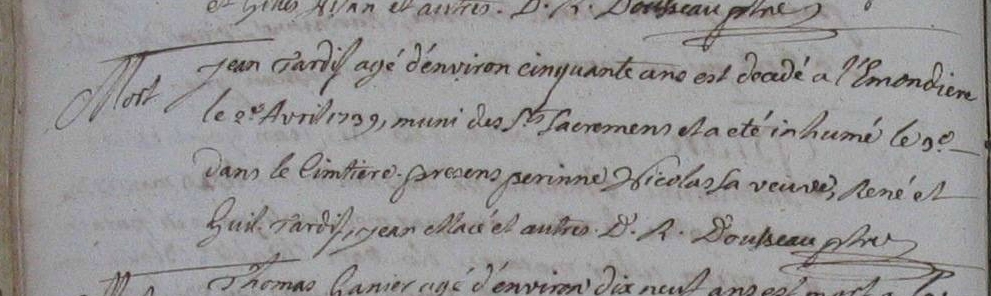 et Gilles Allan et autres. D. R. Dousseau ptre
Mort
jean Tardif agé d'environ cinquante ans est decadé a l'Emondiere
le 2e Avril 1739, muni des Sts Sacremens et a eté inhumé le 3e
dans le Cimtiere. presens perinne Nicolas sa veuve, René et
Guil. Tardif, jean Macé et autres. D. R. Dousseau ptre
Thomas Ganier agé d'environ dix neuf ans est mort a